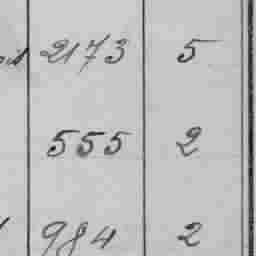 2173 5
555 2
984 2